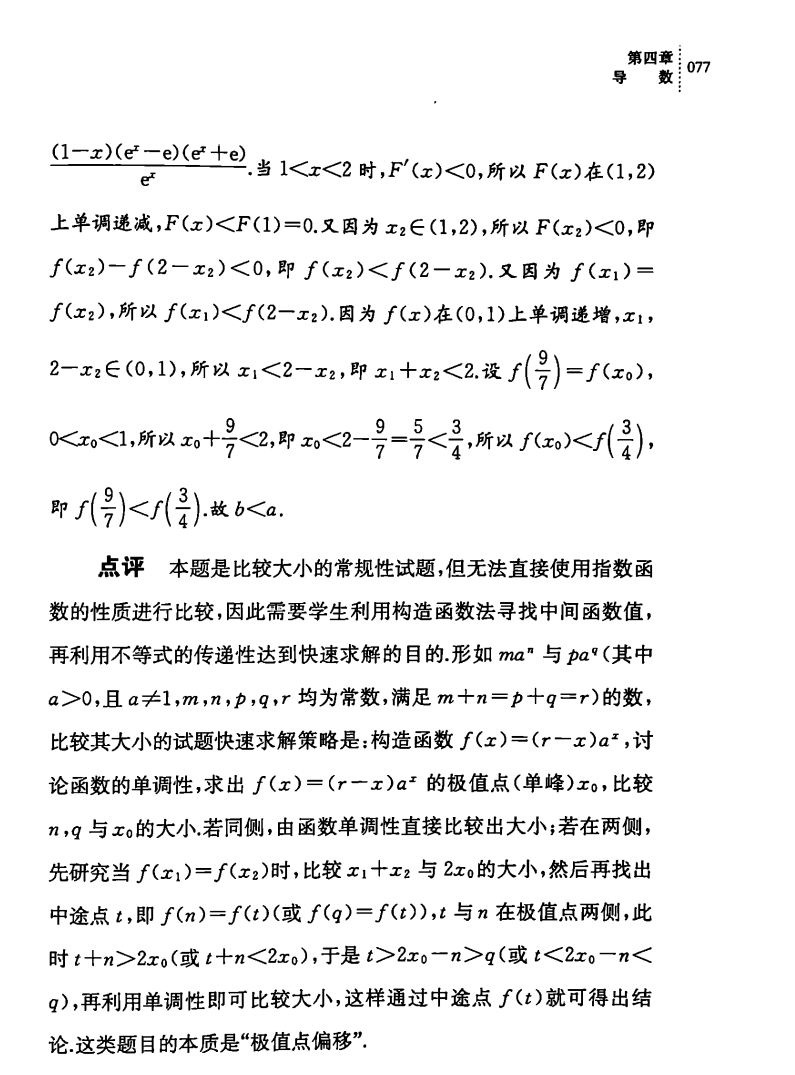 第四章
导 数
077
(1-x)(eˣ-e)(eˣ+e)/eˣ.当 1<x<2 时,F′(x)<0,所以 F(x)在(1,2)
上单调递减,F(x)<F(1)=0.又因为 x₂∈(1,2),所以 F(x₂)<0,即
f(x₂)-f(2-x₂)<0,即 f(x₂)<f(2-x₂).又因为 f(x₁)=
f(x₂),所以 f(x₁)<f(2-x₂).因为 f(x)在(0,1)上单调递增,x₁,
2-x₂∈(0,1),所以 x₁<2-x₂,即 x₁+x₂<2.设 f(9/7)=f(x₀),
0<x₀<1,所以 x₀+9/7<2,即 x₀<2-9/7=5/7<3/4,所以 f(x₀)<f(3/4),
即 f(9/7)<f(3/4).故 b<a.
点评 本题是比较大小的常规性试题,但无法直接使用指数函
数的性质进行比较,因此需要学生利用构造函数法寻找中间函数值,
再利用不等式的传递性达到快速求解的目的.形如 maⁿ 与 pa^q(其中
a>0,且 a≠1,m,n,p,q,r 均为常数,满足 m+n=p+q=r)的数,
比较其大小的试题快速求解策略是:构造函数 f(x)=(r-x)aˣ,讨
论函数的单调性,求出 f(x)=(r-x)aˣ 的极值点(单峰)x₀,比较
n,q 与 x₀的大小.若同侧,由函数单调性直接比较出大小;若在两侧,
先研究当 f(x₁)=f(x₂)时,比较 x₁+x₂ 与 2x₀的大小,然后再找出
中途点 t,即 f(n)=f(t)(或 f(q)=f(t)),t 与 n 在极值点两侧,此
时 t+n>2x₀(或 t+n<2x₀),于是 t>2x₀-n>q(或 t<2x₀-n<
q),再利用单调性即可比较大小,这样通过中途点 f(t)就可得出结
论.这类题目的本质是“极值点偏移”.